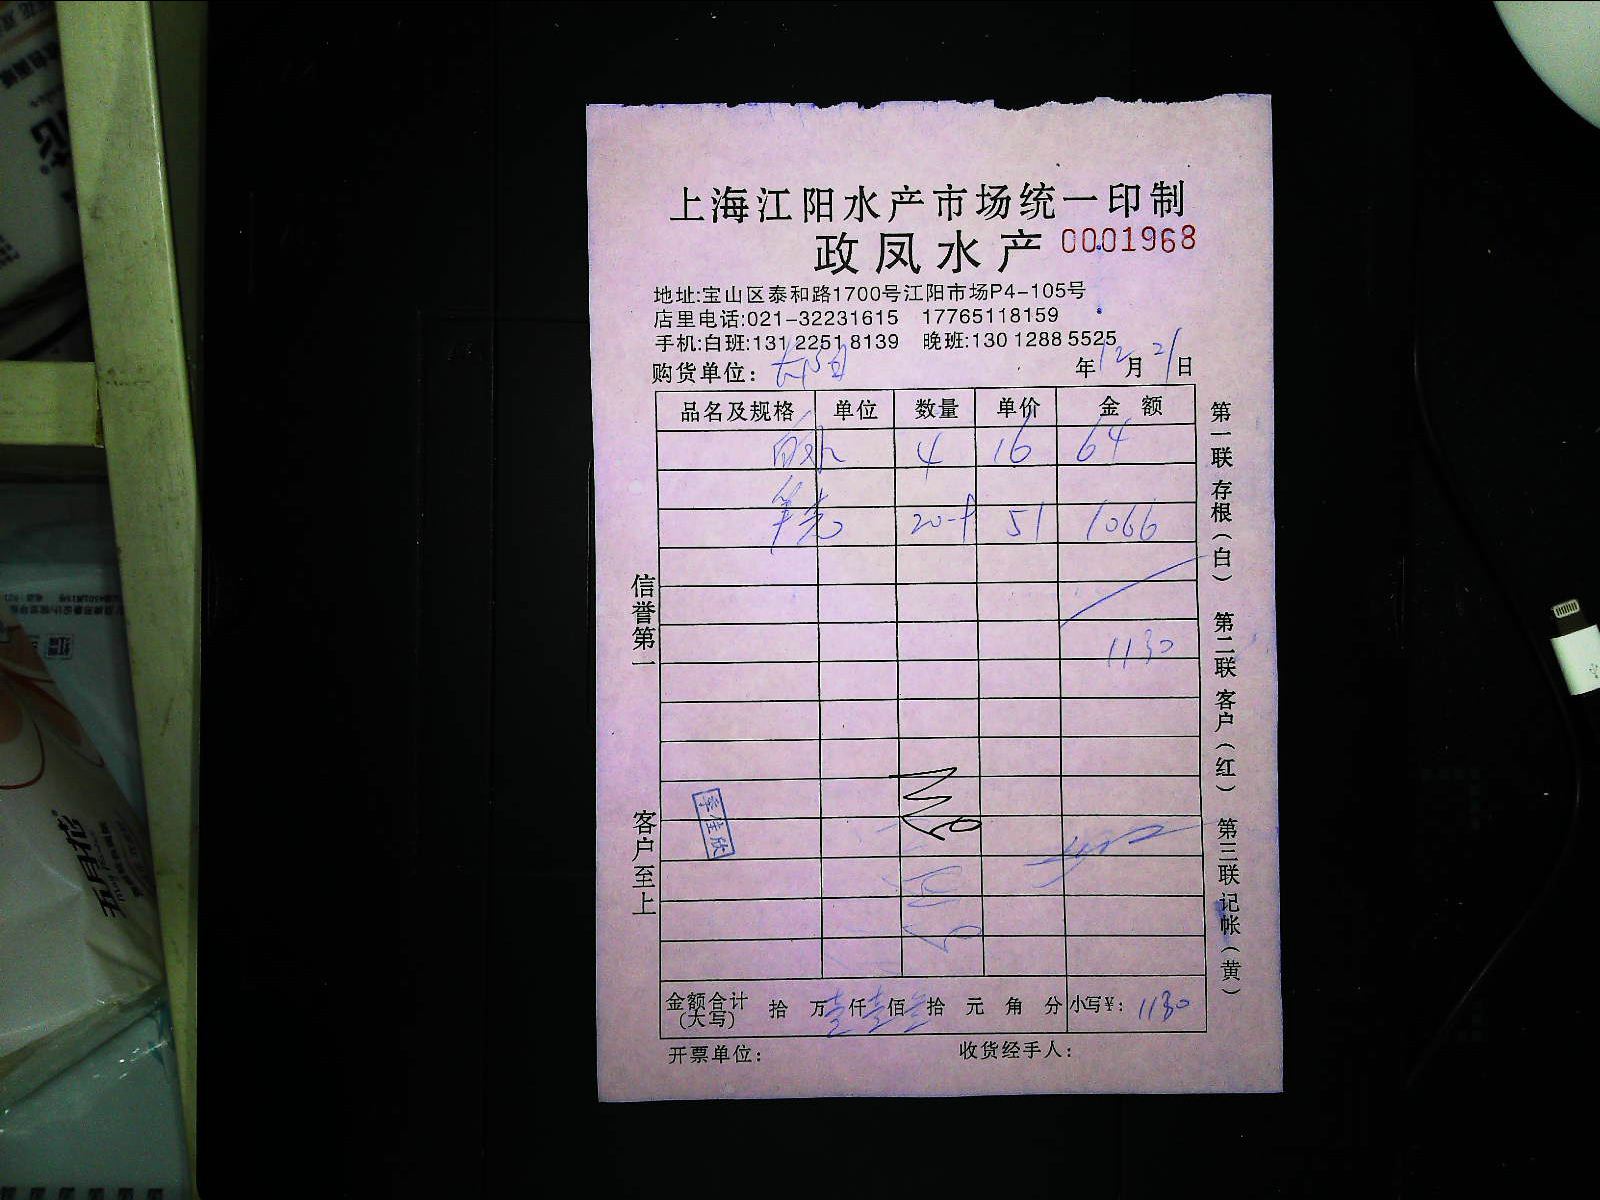 上海江阳水产市场统一印制
政凤水产 0001968
地址:宝山区泰和路1700号江阳市场P4-105号
店里电话:021-32231615 17765118159
手机:白班:131 2251 8139 晚班:130 1288 5525
购货单位: 年12月21日
品名及规格 单位 数量 单价 金额
4 16 64
51 1066
1130
金额合计(大写) 拾 万壹仟壹佰叁拾 元 角 分 小写¥: 1130
开票单位: 收货经手人:
信誉第一
客户至上
李佳欣
第一联 存根(白) 第二联 客户(红) 第三联 记帐(黄)